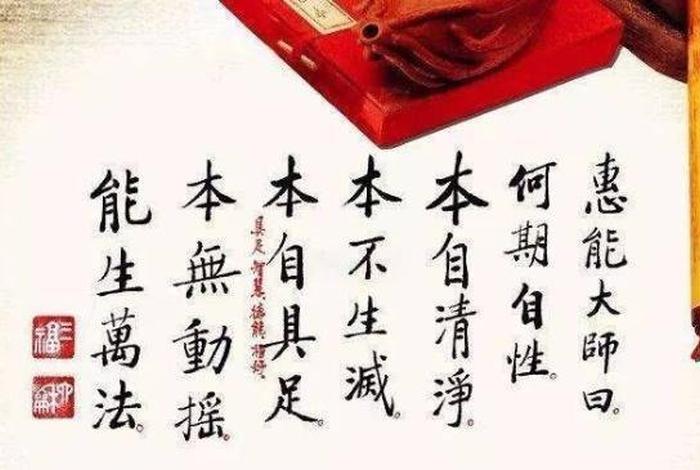 惠能大師曰。
何期自性。
本自清淨。
本不生滅。
本自具足。
具足智慧德能相好。
本無動搖。
能生萬法。